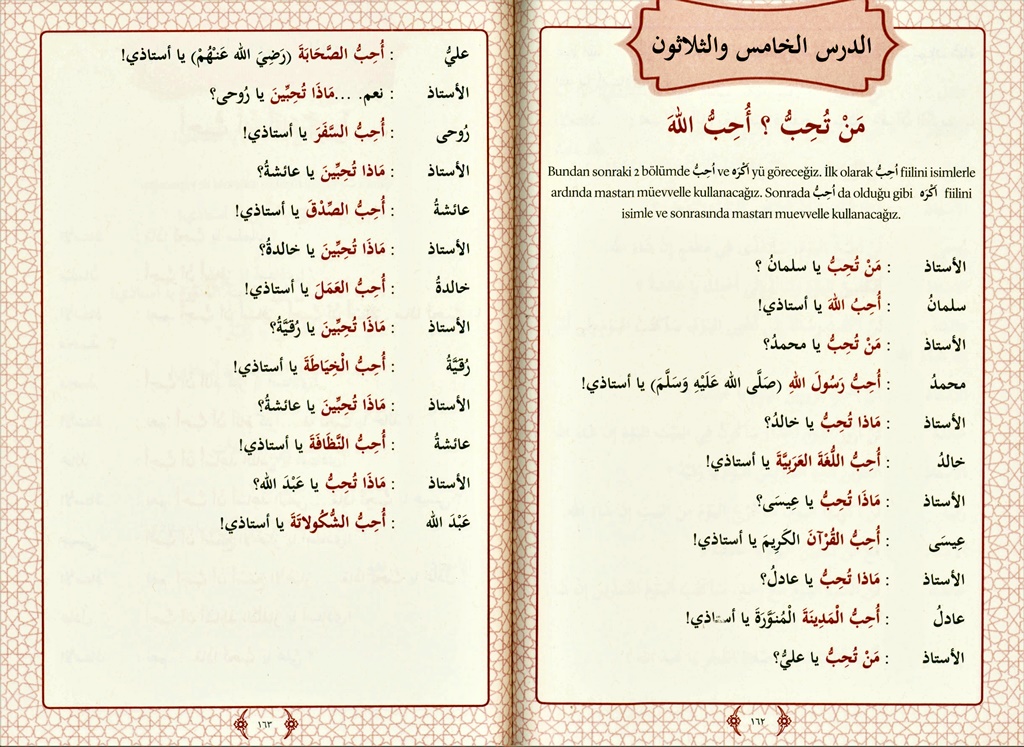 الدرس الخامس والثلاثون
مَنْ تُحِبُّ ؟ أُحِبُّ اللهَ
Bundan sonraki 2 bölümde أُحِبُّ ve أَكْرَه yü göreceğiz. İlk olarak أُحِبُّ fiilini isimlerle
ardında mastarı müevvelle kullanacağız. Sonrada أُحِبُّ da olduğu gibi أَكْرَه fiilini
isimle ve sonrasında mastarı muevvelle kullanacağız.
الأستاذ : مَنْ تُحِبُّ يا سلمانُ ؟
سلمانُ : أُحِبُ اللهَ يا أستاذي!
الأستاذ : مَنْ تُحِبُّ يا محمدُ؟
محمدُ : أُحِبُّ رَسُولَ اللهِ (صَلَّى الله عَلَيْهِ وَسَلَّمَ) يا أستاذي!
الأستاذ : ماذا تُحِبُّ يا خالدُ؟
خالدُ : أُحِبُّ اللُّغَةَ العَرَبِيَّةَ يا أستاذي!
الأستاذ : مَاذَا تُحِبُّ يا عِيسَى؟
عِيسَى : أُحِبُّ القُرْآنَ الكَرِيمَ يا أستاذي!
الأستاذ : مَاذا تُحِبُّ يا عادلُ؟
عادلُ : أُحِبُّ الْمَدِينَةَ الْمُنَوَّرَةَ يا أستاذي!
الأستاذ : مَنْ تُحِبُّ يا عليُّ؟
١٦٢
عليُّ : أُحِبُّ الصَّحَابَةَ (رَضِيَ الله عَنْهُمْ) يا أستاذي!
الأستاذ : نعم. ...مَاذَا تُحِبِّينَ يا رُوحى؟
رُوحى : أُحِبُّ السَّفَرَ يا أستاذي!
الأستاذ : مَاذا تُحِبِّينَ يا عائشةُ؟
عائشةُ : أُحِبُّ الصِّدْقَ يا أستاذي!
الأستاذ : مَاذَا تُحِبِّينَ يا خالدةُ؟
خالدةُ : أُحِبُّ العَمَلَ يا أستاذي!
الأستاذ : مَاذَا تُحِبِّينَ يا رُقيَّةُ؟
رُقيَّةُ : أُحِبُّ الْخِيَاطَةَ يا أستاذي!
الأستاذ : مَاذَا تُحِبِّينَ يا عائشةُ؟
عائشةُ : أُحِبُّ النَّظَافَةَ يا أستاذي!
الأستاذ : مَاذَا تُحِبُّ يا عَبْدَ الله؟
عَبْدَ الله : أُحِبُّ الشُّكُولاتَةَ يا أستاذي!
١٦٣